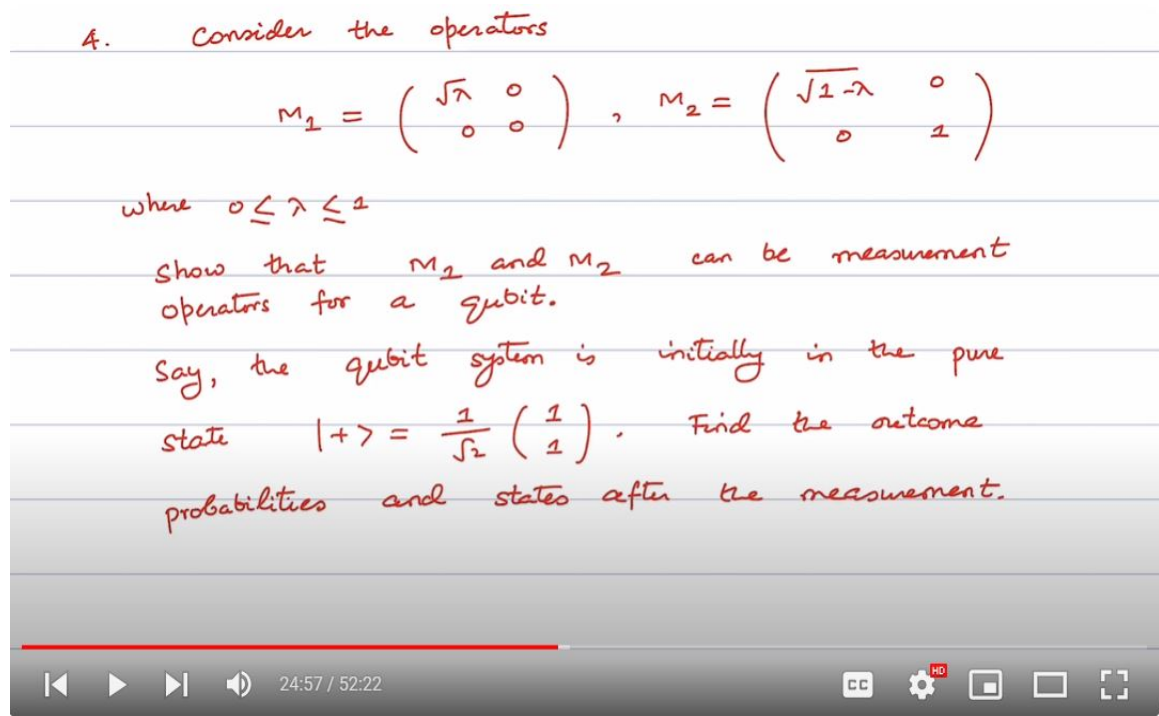 4. Consider the operators
M₁ = ( √λ 0 0 0 ) , M₂ = ( √1-λ 0 0 1 )
where 0 ≤ λ ≤ 1
Show that M₁ and M₂ can be measurement
operators for a qubit.
Say, the qubit system is initially in the pure
state |+> = 1/√2 ( 1 1 ) . Find the outcome
probabilities and states after the measurement.
24:57 / 52:22 CC HD